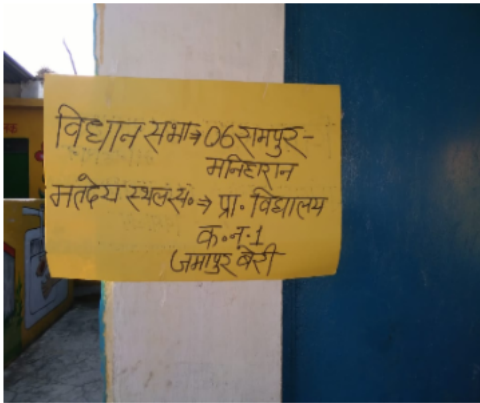 विधान सभा→06 रामपुर-
मनिहारान
मतदेय स्थल सं.→ प्रा. विद्यालय
क.न.1
जमापुर बेरी